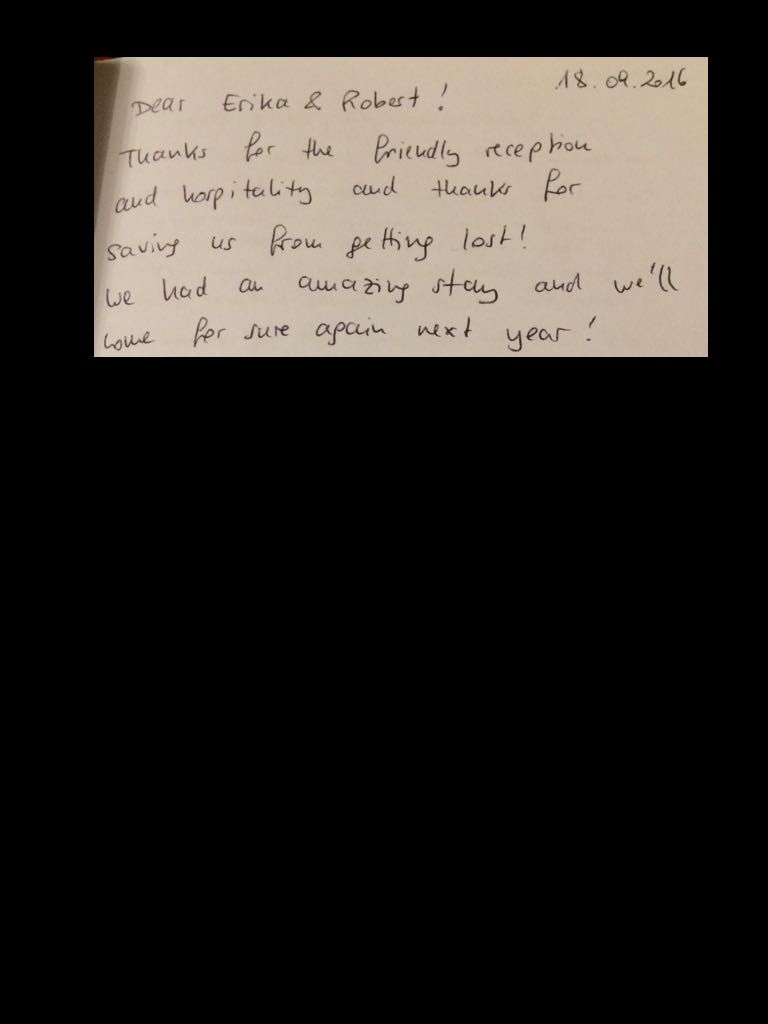 18.09.2016
Dear Erika & Robert!
Thanks for the friendly reception
and hospitality and thanks for
saving us from getting lost!
We had an amazing stay and we'll
come for sure again next year!